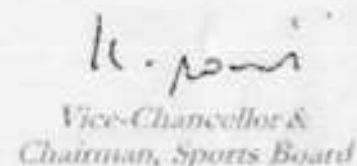 Vice-Chancellor &
Chairman, Sports Board